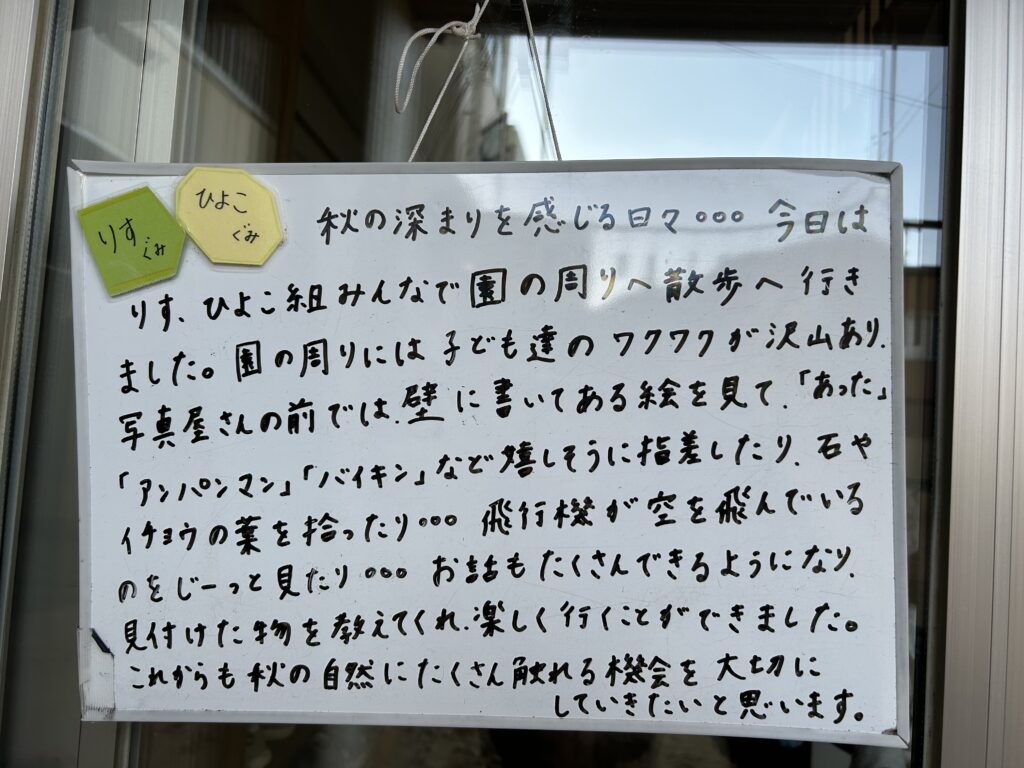 りす
ぐみ
ひよこ
ぐみ
秋の深まりを感じる日々... 今日は
りす、ひよこ組みんなで園の周りへ散歩へ行き
ました。園の周りには子ども達のワクワクが沢山あり、
写真屋さんの前では、壁に書いてある絵を見て、「あった」
「アンパンマン」「バイキン」など嬉しそうに指差したり、石や
イチョウの葉を拾ったり... 飛行機が空を飛んでいる
のをじーっと見たり... お話もたくさんできるようになり、
見付けた物を教えてくれ、楽しく行くことができました。
これからも秋の自然にたくさん触れる機会を大切に
していきたいと思います。